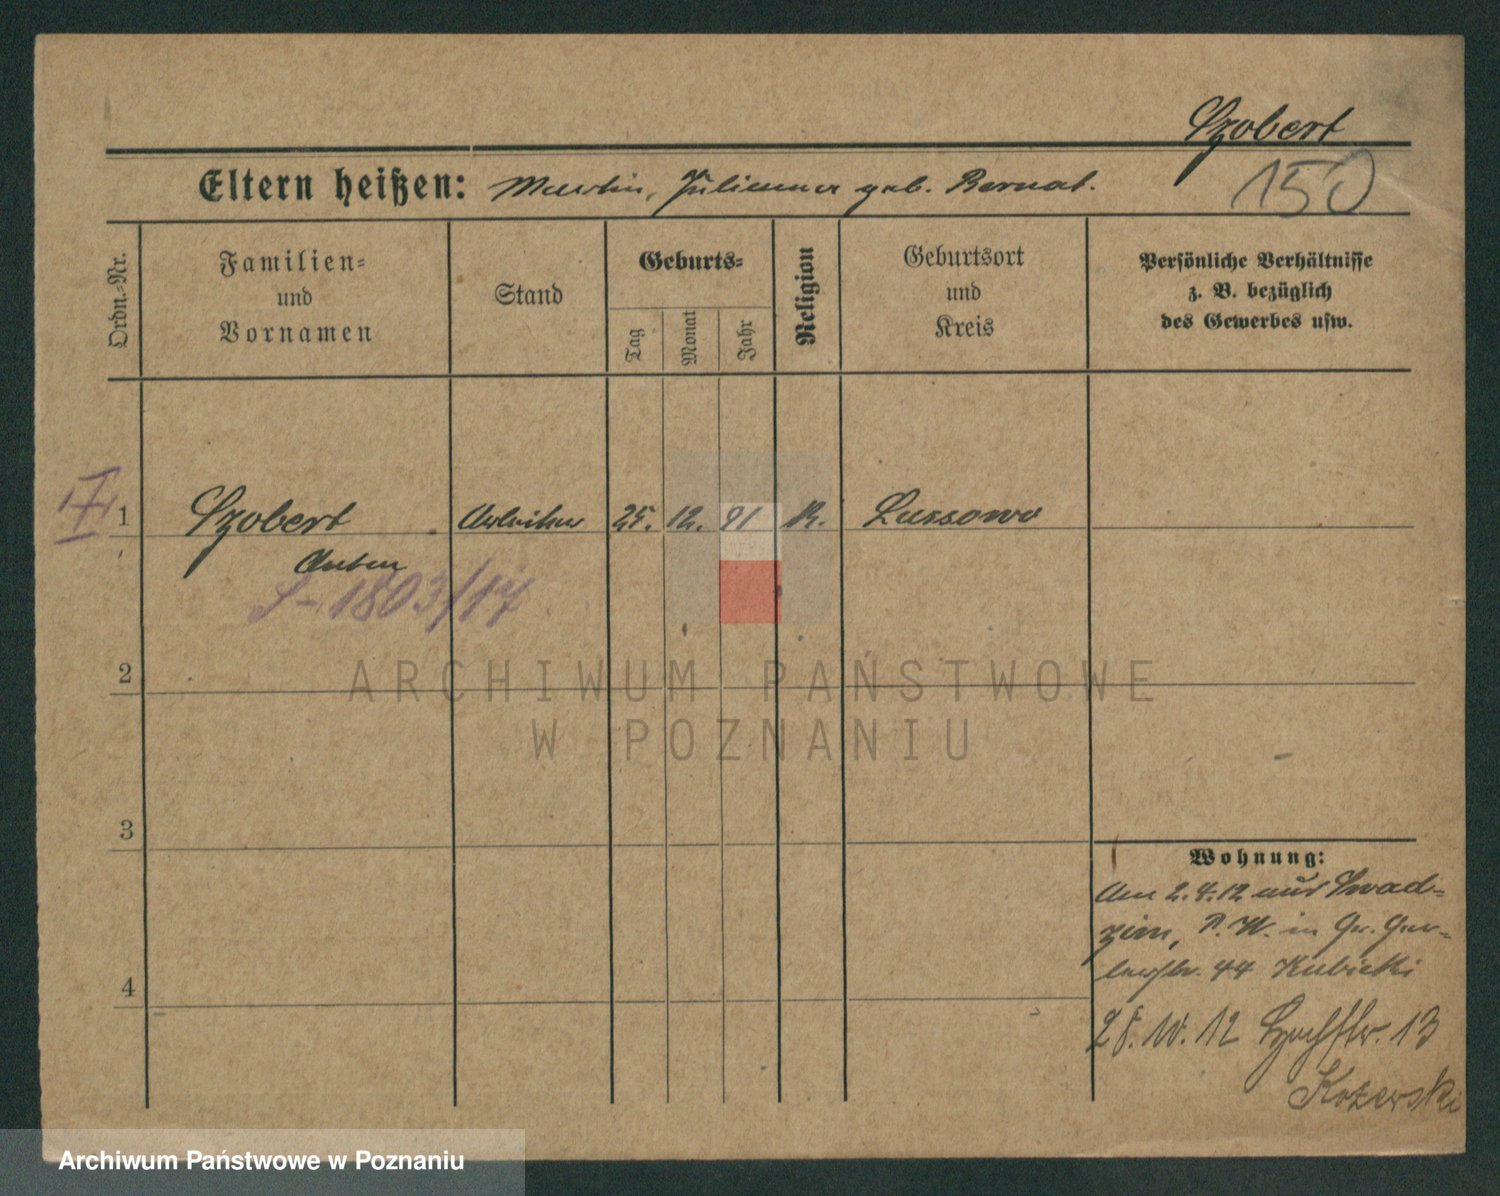 Szobert
150
Eltern heißen: Martin, Julianna geb. Bernat.
Ordn.-Nr.
Familien-
und
Vornamen
Stand
Geburts-
Tag
Monat
Jahr
Religion
Geburtsort
und
Kreis
Persönliche Verhältnisse
z. B. bezüglich
des Gewerbes usw.
1 Szobert Arbeiter 25. 12. 91 K. Lussowo
Anton
S-1803/17
2
3
4
ARCHIWUM PAŃSTWOWE
W POZNANIU
Wohnung:
Am 2.4.12 aus Swad-
zim, P. W. in Gr. Ger-
berstr. 44 Kubicki
28.10.12 13
Kozerski
Archiwum Państwowe w Poznaniu